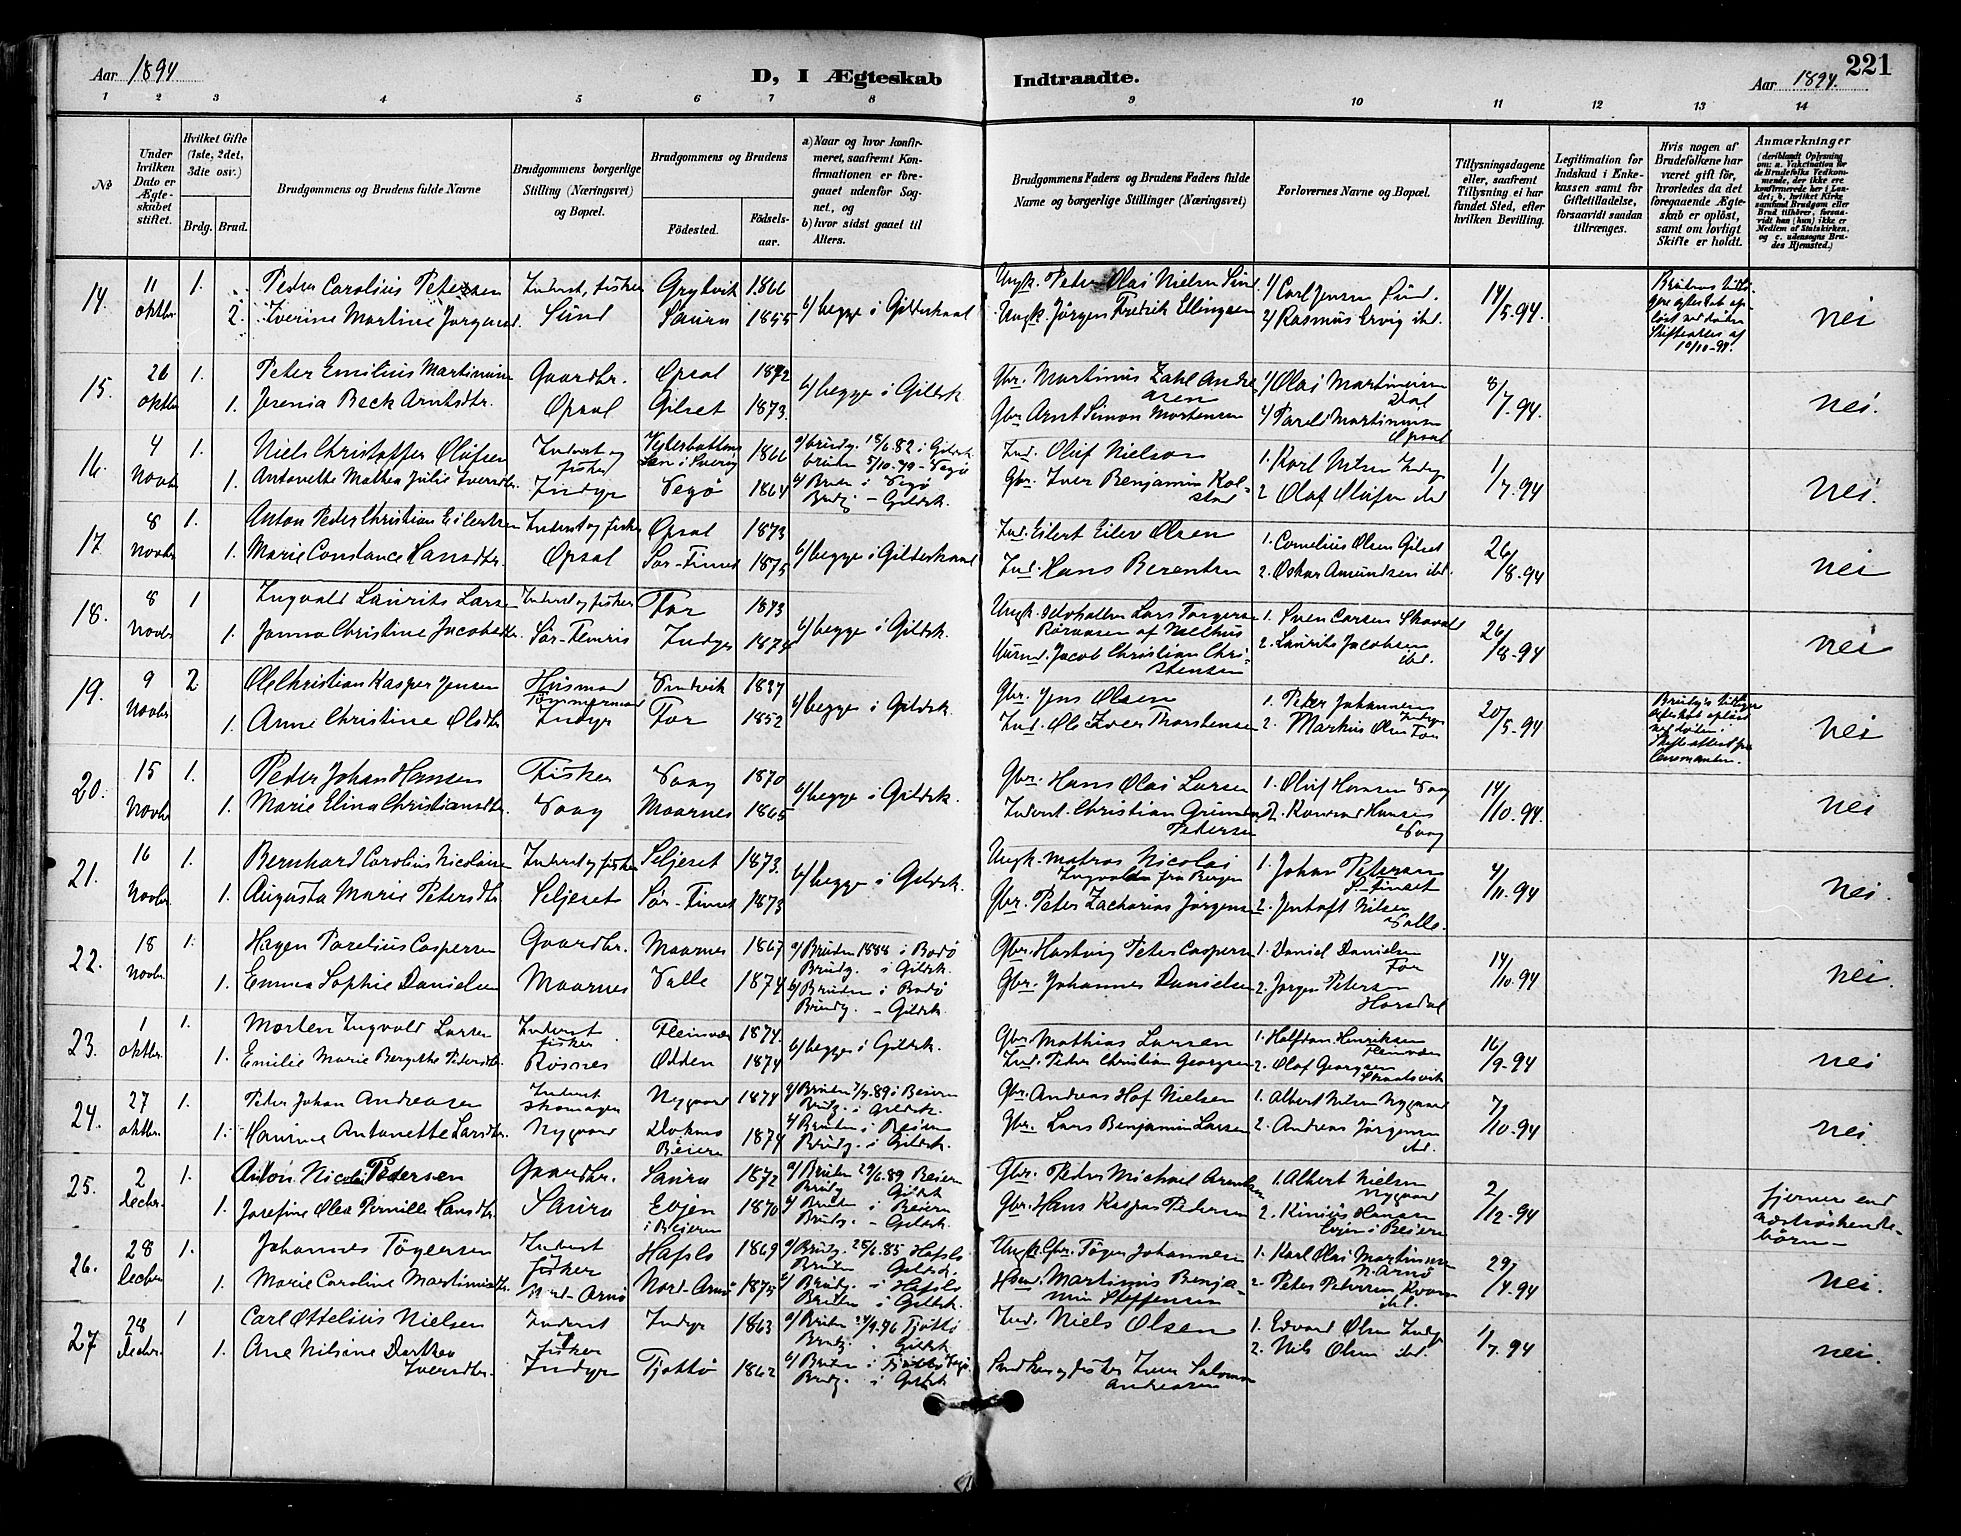 Aar 1894
D, I Ægteskab Indtraadte.
Aar 1894.
221
1 2 3 4 5 6 7 8 9 10 11 12 13 14
No
Under hvilken Dato er Ægteskabet stiftet.
Hvilket Gifte (1ste, 2det, 3die osv.)
Brdg. Brud.
Brudgommens og Brudens fulde Navne
Brudgommens borgerlige Stilling (Næringsvei) og Bopæl.
Brudgommens og Brudens
Födested.
Födsels-aar.
a) Naar og hvor konfirmeret, saafremt Konfirmationen er foregaaet udenfor Sognet, og
b) hvor sidst gaaet til Alters.
Brudgommens Faders og Brudens Faders fulde Navne og borgerlige Stillinger (Næringsvei)
Forlovernes Navne og Bopæl.
Tillysningsdagene eller, saafremt Tillysning ei har fundet Sted, efter hvilken Bevilling.
Legitimation for Indskud i Enkekassen samt for Giftetilladelse, forsaavidt saadan tiltrænges.
Hvis nogen af Brudefolkene har været gift før, hvorledes da det foregaaende Ægteskab er oplöst, samt om lovligt Skifte er holdt.
Anmærkninger
(deriblandt Oplysning om: a. Vakcination for de Brudefolks Vedkommende, der ikke ere konfirmerede her i Landet; b, hvilket Kirkesamfund Brudgom eller Brud tilhörer, forsaavidt han (hun) ikke er Medlem af Statskirken, og c. udensogns Brudes Hjemsted.)
14. 11 1. Peder Carolius Petersen Inderst, fisker Grytvik 1866 b/ begge i Gildeskaal Ungk. Peder Olai Nielsen Sund 1/ Carl Jensen Sund. 14/5-94. nei
oktbr 2. Iverine Martine Sund Saura 1855 Ungk. Jörgen Fredrik Ellingsen 2/ Rasmus Ervig ibd.
15. 26 1. Peter Emilius Martinusen Gaardbr. Opsal 1872 b/ begge i Gildsk. Gbr. Martinus Zahl Andreasen 1/ Olai Martinusen 8/7-94. nei.
oktbr 1. Jesenia Beck Arntsdtr. Opsal Gilset 1873. Gbr. Arnt Simon Mortensen Martinusen Opsal
16. 4 1. Niels Christoffer Olufsen Inderst og fisker 1866 a/ brudg. 18/6.82 i Gildsk. bruden 5/10-79 - Vegö Ind. Oluf Nielsen 1. Karl Nilsen Indyr 1/7-94 nei.
Novbr 1. Antonette Mathea Julie Iversdtr. Indyr Vegö 1864 b/ Bruden i Vegö Brudg. - Gildsk. Gbr. Iver Benjamin Kolstad 2 Olaf Olufsen ibd
17. 8 1. Anton Peder Christian Eilertsen Inderst og fisker Opsal 1873 b/ begge i Gildeskaal Ind. Eilert Eilev Olsen 1. Cornelius Olsen Gilset 26/8-94 nei
Novbr 1. Marie Constance Hansdtr. Opsal Sör-Finset 1875 Ind. Hans Berentsen 2. Oskar Amundsen ibd.
18. 8 1 Ingvald Laurits Larsen Inderst og fisker For 1873 b/ begge i Gildsk. Ungk. Lars 1. Sven Larsen 26/8-94 nei
Novbr 1. Janna Christine Jacobsdtr. Indyr 1874 Jacob Christian Christensen 2. Laurits Jacobsen ibd.
19. 9 2 Ole Christian Kasper Jensen Husmand Tömmermand Sundvik 1837 b/ begge i Gildsk. Gbr. Jens Olsen 1. Peter Johannesen Indyr 20/5-94 nei
Novbr 1. Anne Christine Olsdtr. Indyr For 1852 Ind. Ole Iver Thorstensen 2. Markus Olsen For
20. 15 1. Peder Johan Hansen Fisker Vaag 1870 b/ begge i Gildsk. Gbr. Hans Olai Larsen 1. Oluf Hansen Vaag 14/10-94. nei
Novbr 1. Marie Elina Christiansdtr. Vaag Maarnes 1865 Inderst. Christian Petersen 2. Konrad Hansen Vaag
21. 16 1. Bernhard Carolius Nicolaisen Inderst og fisker Seljeset 1873. b/ begge i Gildsk. Ungk. matros Nicolai fra Bergen 1. Johan Petersen S-Finset 4/11-94 nei.
Novbr 1. Augusta Marie Petersdtr. Seljeset Sör-Finset 1873 Gbr. Peter Zacharias Jörgensen 2. Jentoft Nilsen Valle.
22. 18 1. Hagen Parelius Caspersen Gaardbr. Maarnes 1867 a/ Bruden 1888 i Bodö Brudg. i Gildsk. Gbr. Hartvig Peter Caspersen 1. Daniel Danielsen For 14/10-94 nei.
Novbr. 1. Emma Sophie Danielsen Maarnes Valle 1874 b/ Bruden i Bodö Brudg. - Gildsk. Gbr. Johannes Danielsen 2. Jörgen Petersen Horsdal
23. 1 1. Morten Ingvald Larsen Inderst fisker Fleinvær 1874. b/ begge i Gildsk. Gbr. Mathias Larsen 1. Halfdan Henriksen Fleinvær 16/9-94 nei
oktbr. 1. Emilie Marie Bergitte Pedersdtr. Rösnes Odden 1874 Ind. Peder Christian Georgsen 2. Olaf Georgsen
24. 27 1. Peter Johan Andreasen Inderst skomager Nygaard 1874 a/ Bruden 7/7.89 i Beieren Brudg. i Gildsk. Gbr. Andreas Hof Nielsen 1. Albert Nilsen Nygaard 7/10-94 nei.
oktbr. 1. Antonette Larsdtr. Nygaard Beieren 1874 b/ Bruden i Beieren Brudg. i Gildsk. Gbr. Lars Benjamin Larsen 2. Andreas Jörgensen ibd.
25. 2 1. Anton Nicolai Pedersen Gaardbr. Saura 1872 a/ Bruden 29/6.89 Beieren Brudg. Gildsk Gbr. Peder Michael 1. Albert Nielsen Nygaard 2/12-94 fjernere end næstsöskendebörn -
Decbr. 1. Josefine Olea Pernille Hansdtr. Saura Evjen i Beieren 1870 b/ Bruden i Beieren Brudg. - Gildsk. Gbr. Hans Kaspar Pedersen 2. Hansen Evjen i Beieren
26. 28 1. Johannes Tögersen Inderst fisker Hafslo 1869 a/ Brudg. 25/6.85 Hafslo Bruden Gildsk. Ungk. Gbr. Töger Johannesen 1. Karl Olai Martinusen N. Arnö 29/4-94 nei.
Decbr 1. Marie Caroline Martinusdtr. Nord-Arnö Nord-Arnö 1875 b/ Brudg. i Hafslo Bruden i Gildsk. Martinus Benjamin Steffensen 2. Peter Petersen ibd.
27 28 1 Carl Ottelius Nielsen Inderst fisker Indyr 1863 a/ Bruden Tjöttö Brudg. Gildsk Ind. Niels Olsen 1. Edvard Olsen Indyr 1/7.94 nei.
Decbr. 1. Ane Nilsine Dorthea Iversdtr. Indyr Tjöttö 1862 b/ Bruden i Tjöttö Brudg. i Gildsk Iver Salomon Andreasen 2. Nils Olsen ibd.